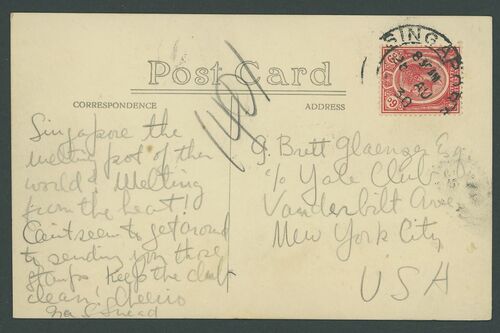 SINGAPORE
Post Card
CORRESPONDENCE
ADDRESS
1401
Singapore the
melting pot of the
world & Melting
from the heat!
Can't seem to get around
to sending you those
stamps Keep the club
clean! Cheerio
J. Brett Glaenzer Esq
c/o Yale Club
Vanderbilt Ave
New York City
USA